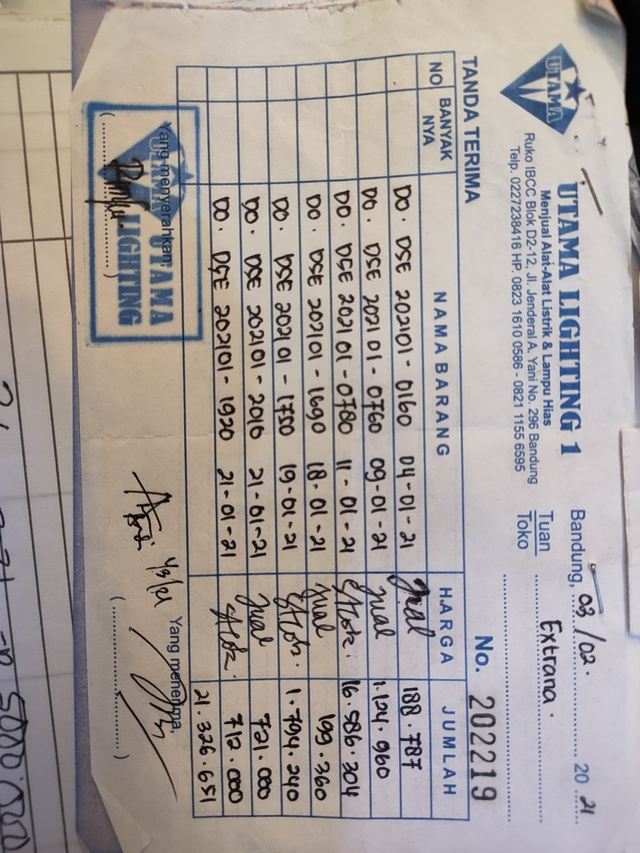 UTAMA
UTAMA LIGHTING 1
Menjual Alat-Alat Listrik & Lampu Hias
Ruko IBCC Blok D2-12, Jl. Jenderal A. Yani No. 296 Bandung
Telp. 0227238416 HP. 0823 1610 0586 - 0821 1155 6595
Bandung, 03/02. 20 21
Tuan Extrana.
Toko
TANDA TERIMA No. 202219
NO BANYAK NYA NAMA BARANG HARGA JUMLAH
DO. DSE 202101-0160 04-01-21 Jual 188.787
DO. DSE 202101-0760 09-01-21 Jual 1.124.960
DO. DSE 202101-0780 11-01-21 16.586.304
DO. DSE 202101-1690 18-01-21 Jual 199.360
DO. DSE 202101-1750 19-01-21 1.794.240
DO. DSE 202101-2010 21-01-21 Jual 721.000
DO. DSE 202101-1920 21-01-21 712.000
21.326.651
Yang menyerahkan,
UTAMA
LIGHTING
Yang menerima,